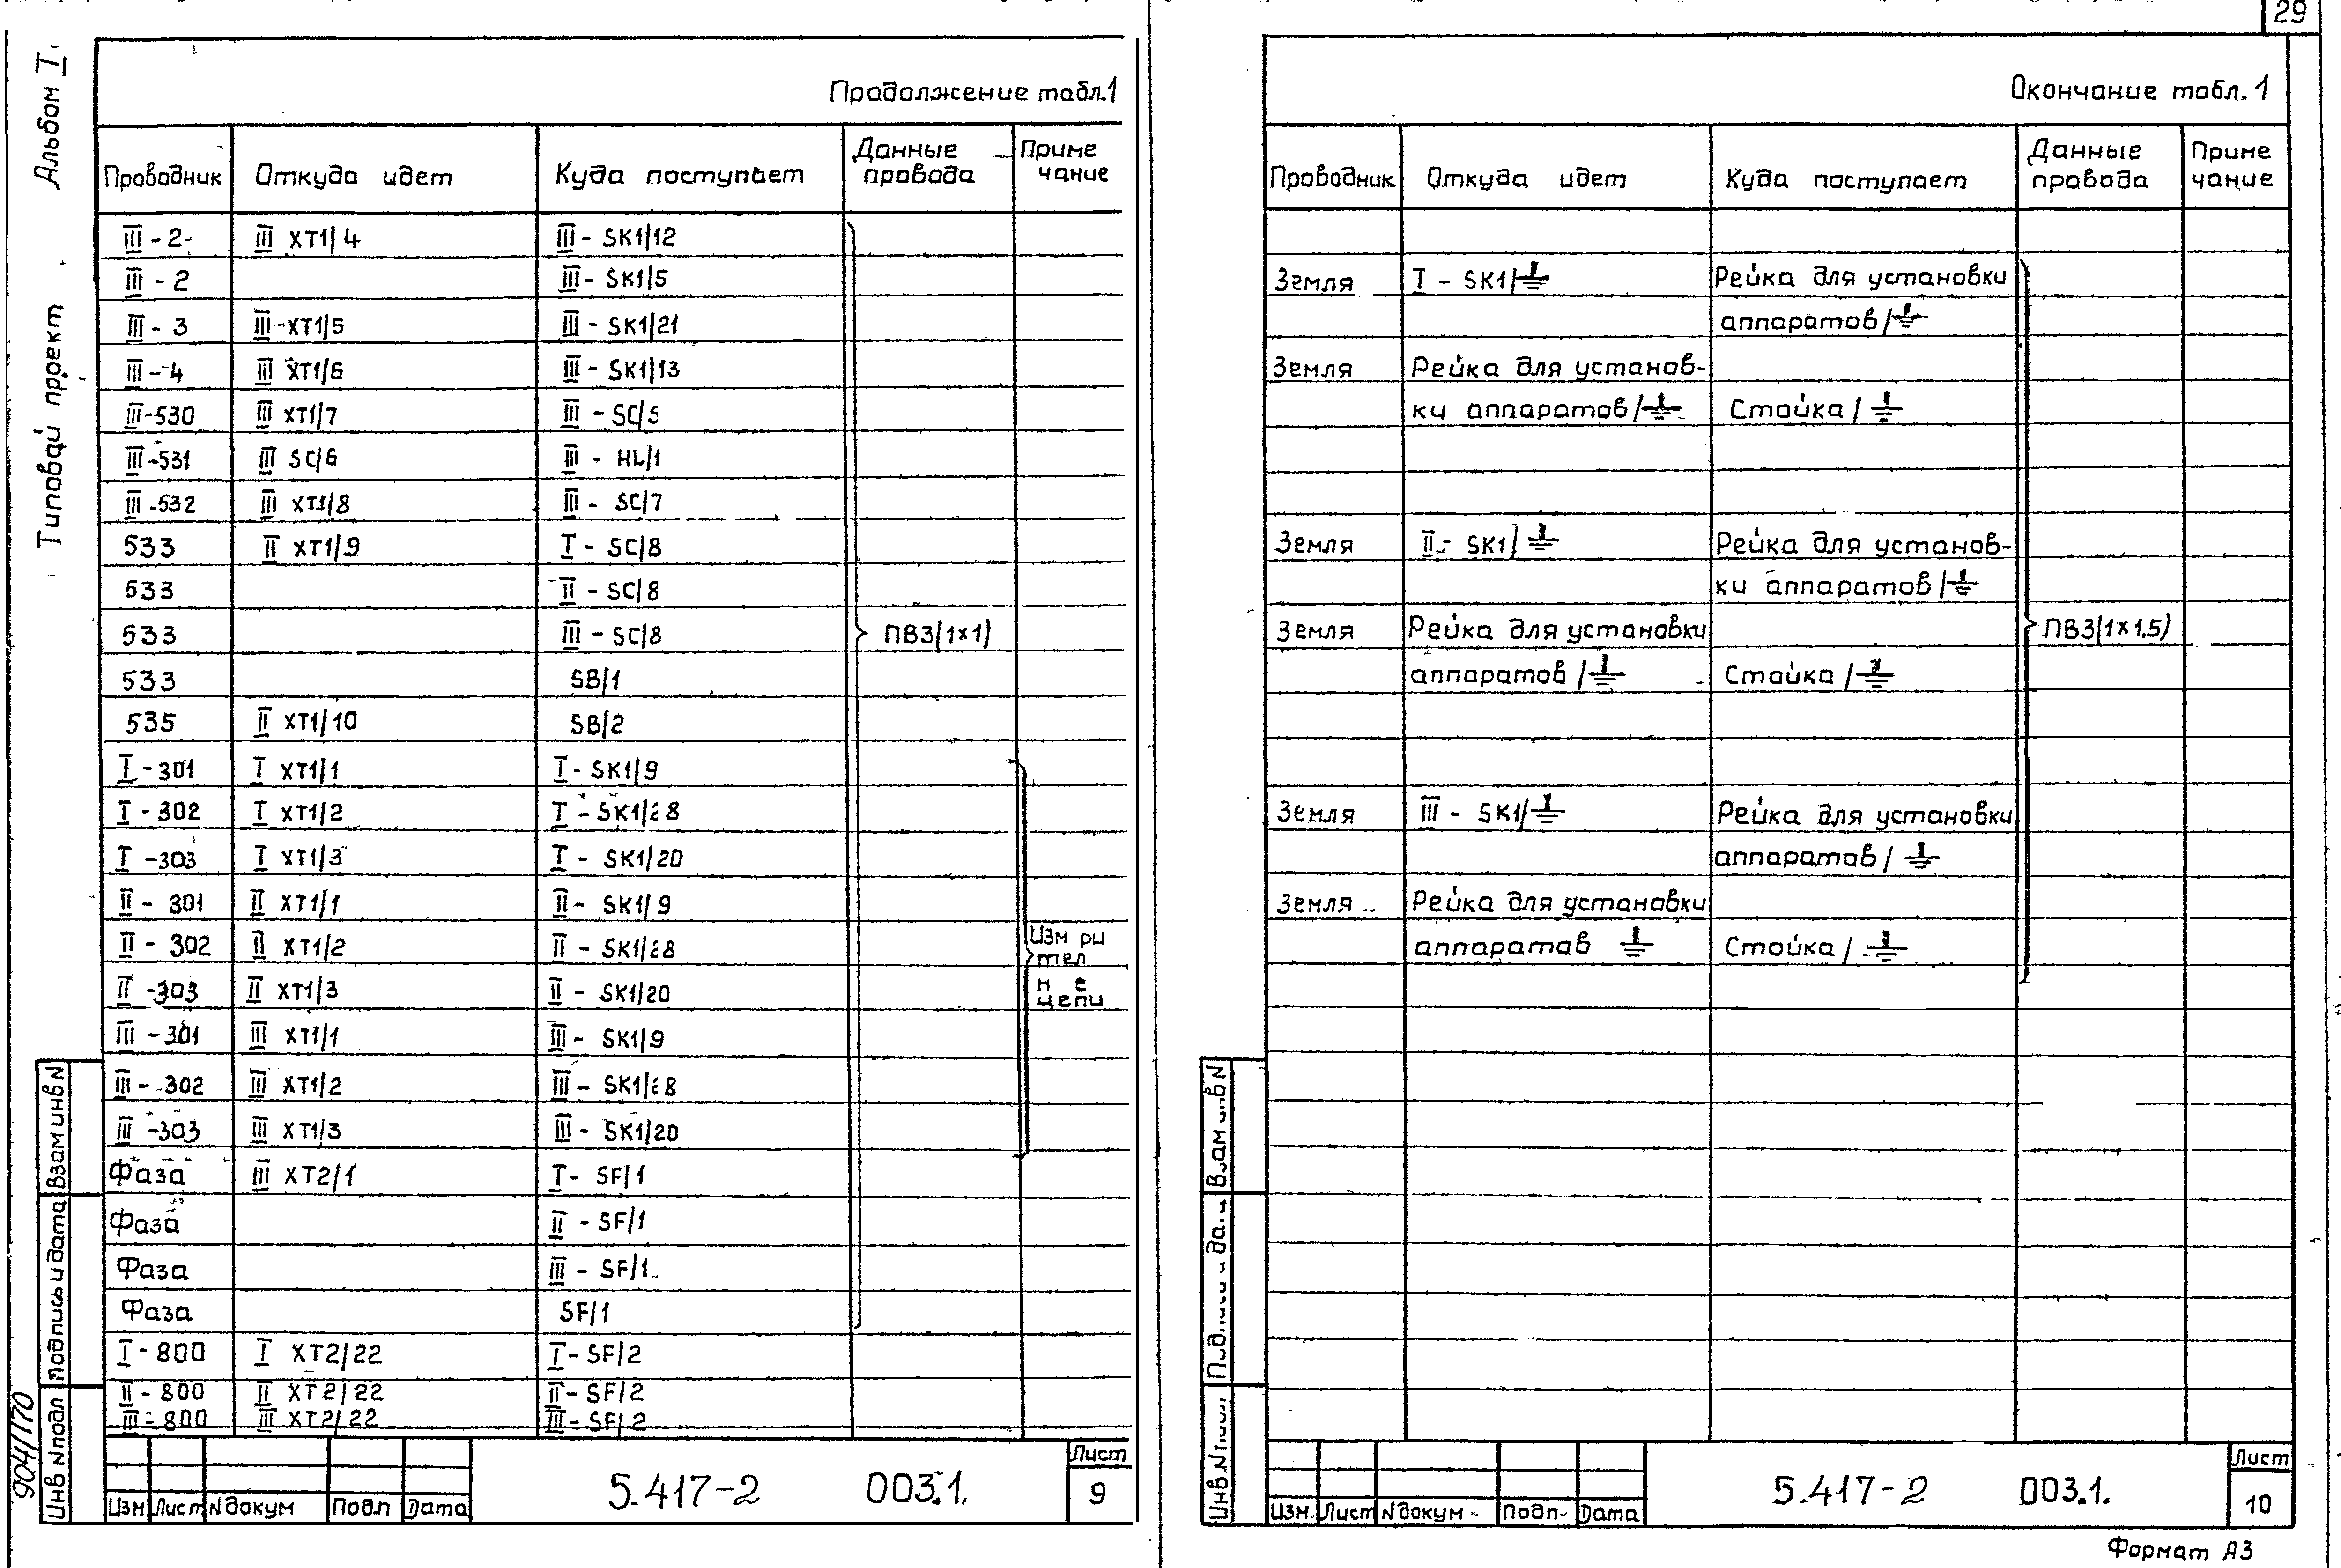 29
Альбом I
Типовой проект
Продолжение табл.1
Проводник Откуда идет Куда поступает Данные провода Приме чание
III - 2 III XT1/4 III - SK1/12
III - 2 III - SK1/5
III - 3 III - XT1/5 III - SK1/21
III - 4 III XT1/6 III - SK1/13
III - 530 III XT1/7 III - SC/5
III - 531 III SC/6 III - HL/1
III - 532 III XT1/8 III - SC/7
533 II XT1/9 I - SC/8
533 II - SC/8
533 III - SC/8 ПВ3(1×1)
533 SB/1
535 II XT1/10 SB/2
I - 301 I XT1/1 I - SK1/9
I - 302 I XT1/2 I - SK1/28
I - 303 I XT1/3 I - SK1/20
II - 301 II XT1/1 II - SK1/9
II - 302 II XT1/2 II - SK1/28
II - 303 II XT1/3 II - SK1/20 цепи
III - 301 III XT1/1 III - SK1/9
III - 302 III XT1/2 III - SK1/28
III - 303 III XT1/3 III - SK1/20
Фаза III XT2/1 I - SF/1
Фаза II - SF/1
Фаза III - SF/1
Фаза SF/1
I - 800 I XT2/22 I - SF/2
II - 800 II XT2/22 II - SF/2
III - 800 III XT2/22 III - SF/2
Взам инв N
Подпись и дата
Инв N подл
904/170
Изм Лист N докум Подп Дата
5.417-2 003.1.
Лист
9
Окончание табл. 1
Проводник Откуда идет Куда поступает Данные провода Приме чание
Земля I - SK1/⏚ Рейка для установки
аппаратов/⏚
Земля Рейка для установ-
ки аппаратов/⏚ Стойка/⏚
Земля II - SK1/⏚ Рейка для установ-
ки аппаратов/⏚
Земля Рейка для установки ПВ3(1×1.5)
аппаратов/⏚ Стойка/⏚
Земля III - SK1/⏚ Рейка для установки
аппаратов/⏚
Земля Рейка для установки
аппаратов ⏚ Стойка/⏚
Изм. Лист N докум Подп Дата
5.417-2 003.1.
Лист
10
Формат А3